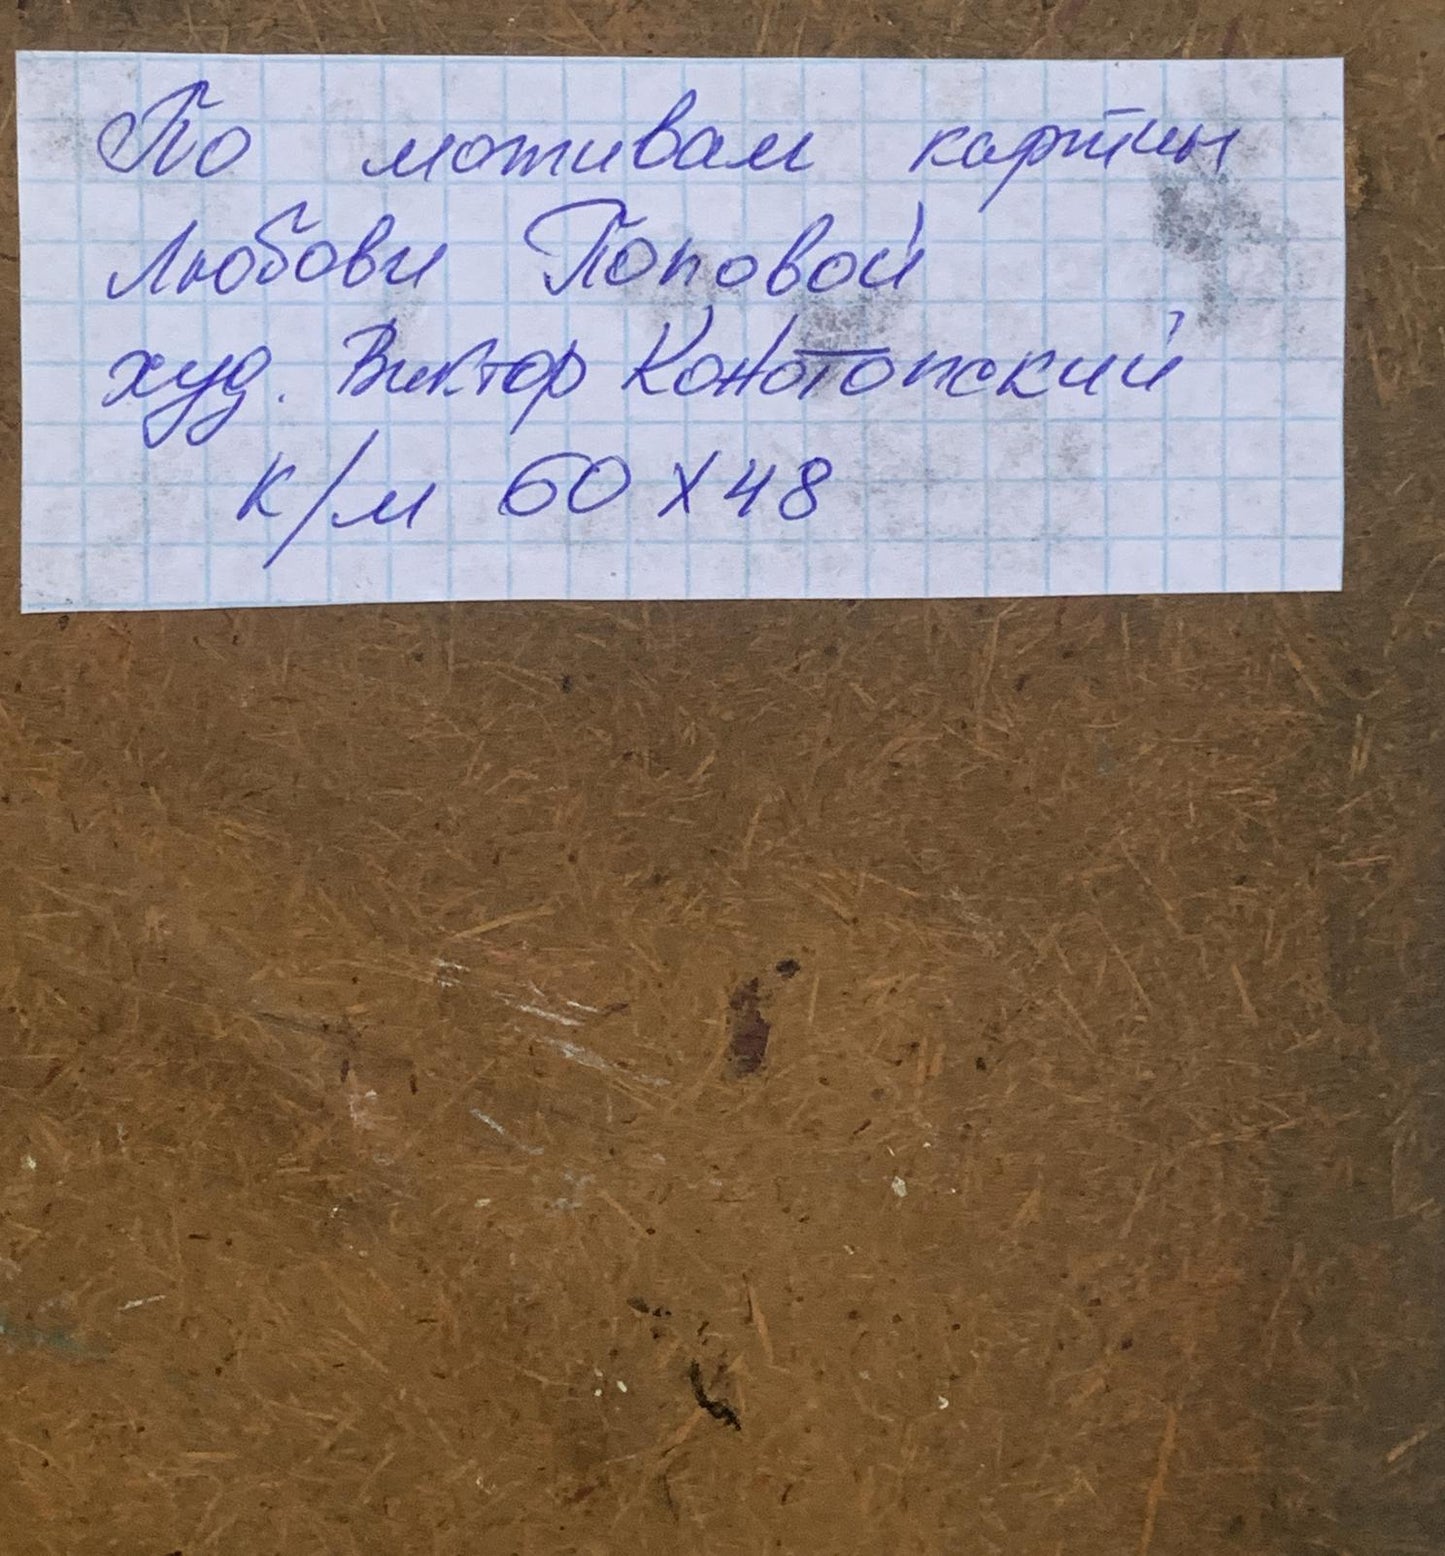 По мотивам картин
Любови Поповой
худ. Виктор Конотопский
к/м 60х48